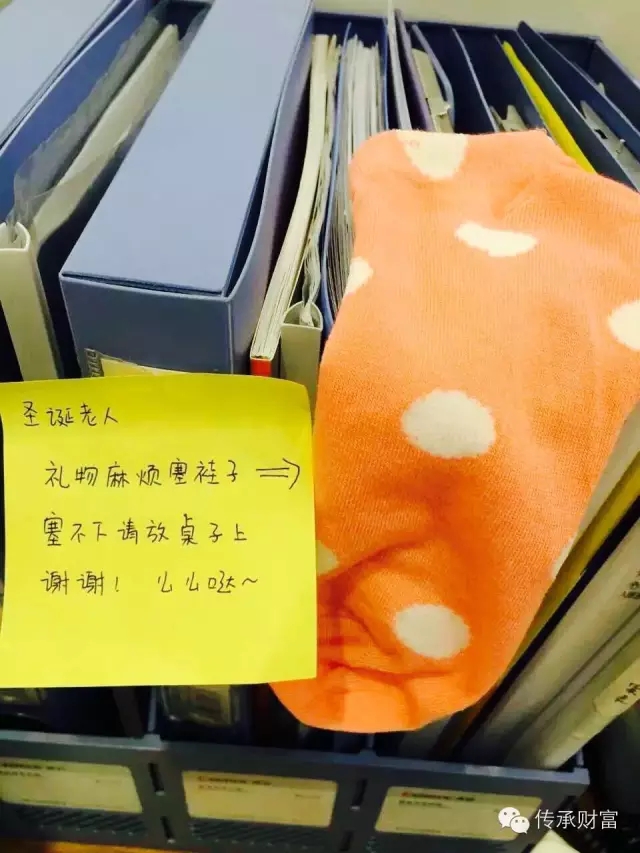 圣诞老人
礼物麻烦塞袜子⇒
塞不下请放桌子上
谢谢! 么么哒~
传承财富